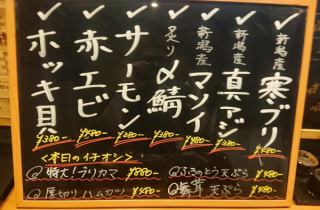 ✓新潟産 寒ブリ ¥480-
✓新潟産 真アジ ¥380-
✓新潟産 マソイ ¥480-
✓炙り〆鯖 ¥380-
✓サーモン ¥380-
✓赤エビ ¥480-
✓ホッキ貝 ¥380-
<本日のイチオシ>
特大!ブリカマ ¥880-
厚切りハムカツ ¥480-
ふきのとう天ぷら ¥480-
舞茸 天ぷら ¥480-